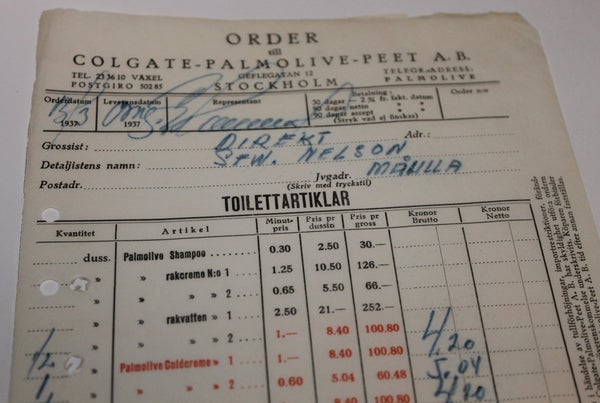 ORDER
till
COLGATE-PALMOLIVE-PEET A. B.
TEL. 23 36 10 VÄXEL GEFLEGATAN 12 TELEGR.-ADRESS:
POSTGIRO 502 85 STOCKHOLM PALMOLIVE
Orderdatum Leveransdatum Representant Betalning: Order n:o
30 dagar — 2 % fr. fakt. datum
90 dagar netto » » »
90 dagar accept » » »
1937 1937 (Stryk vad ej önskas)
Grossist: DIREKT Adr.:
Detaljistens namn: SFW. NELSON
Postadr. Jvgadr. MÅLILLA
(Skriv med tryckstil)
TOILETTARTIKLAR
Kvantitet Artikel Minutpris Pris pr dussin Pris pr gross Kronor Brutto Kronor Netto
duss. Palmolive Shampoo 0.30 2.50 30.—
» » rakcreme N:o 1 1.25 10.50 126.—
» » » » 2 0.65 5.50 66.—
» » rakvatten » 1 2.50 21.— 252.—
» » » » 2 1.— 8.40 100.80
1/2 » Palmolive Coldcreme » 1 1.— 8.40 100.80 4/20
1/ » » » » 2 0.60 5.04 60.48 5.04
8.40 100.80 4/20